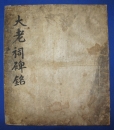 大老祠碑銘